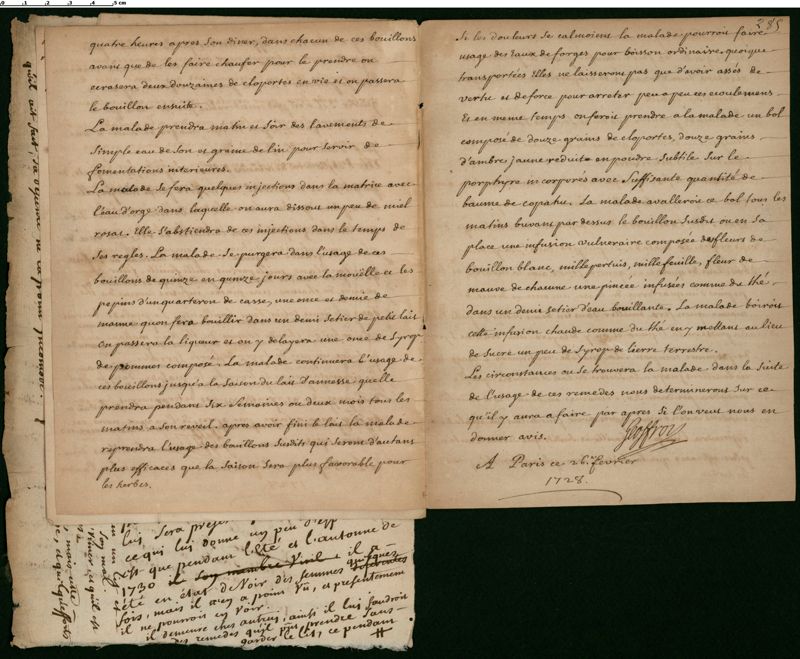 quatre heures apres son diner, dans chacun de ces bouillons
avant que de les faire chaufer pour le prendre on
ecrasera deux douzaines de cloportes en vie et on passera
le bouillon ensuite.
La malade prendra matin et soir des lavements de
simple eau de son et graine de lin pour servir de
fomentations interieures.
La malade se fera quelques injections dans la matrice avec
l'eau d'orge dans laquelle on aura dissout un peu de miel
rosat. Elle s'abstiendra de ces injections dans le temps de
ses regles. La malade se purgera dans l'usage de ces
bouillons de quinze en quinze jours avec la mouëlle et les
pepins d'un quarteron de casse, une once et demie de
manne qu'on fera bouillir dans un demi setier de petit lait
on passera la liqueur et on y délayera une once de syrop
de pommes composé. La malade continuera l'usage de
ces bouillons jusqu'a la saison du lait d'annesse quelle
prendra pendant six semaines ou deux mois tous les
matins a son reveil. apres avoir fini le lait la malade
reprendra l'usage des bouillons susdits qui seront d'autant
plus efficaces que la saison sera plus favorable pour
les herbes.
285
Si les douleurs se calmoient la malade pourroit faire
usage des Eaux de forges pour boisson ordinaire, quoique
transportées Elles ne laisseront pas que d'avoir assés de
vertu et de force pour arreter peu a peu ces ecoulemens.
Et en meme temps on feroit prendre a la malade un bol
composé de douze grains de cloportes, douze grains
d'ambre jaune reduite en poudre subtile sur le
porphyre incorporés avec suffisante quantité de
baume de copahu. La malade avalleroit ce bol tous les
matins buvant par dessus le bouillon susdit ou en sa
place une infusion vulneraire composée des fleurs de
bouillon blanc, millepertuis, millefeuille, fleur de
mauve de chacune une pincée infusées comme du thé
dans un demi setier d'eau bouillante. La malade boiroit
cette infusion chaude comme du thé en y mettant au lieu
de sucre un peu de syrop de lierre terrestre.
Les circonstances ou se trouvera la malade dans la suite
de l'usage de ces remedes nous determineront sur ce
qu'il y aura a faire par apres si l'on veut nous en
donner avis.
Geoffroy
A Paris ce 26.e février
1728.
lui sera
ce qui lui donne un peu
est que pendant l'été et l'automne de
1730
été en etat de voir des femmes quelques
fois, mais il n'en a point vû, et presentement
il ne pourroit en voir.
il demeure ches autrui, ainsi il lui faudroit
des remedes qu'il pût prendre sans
garder le lit, ce pendant